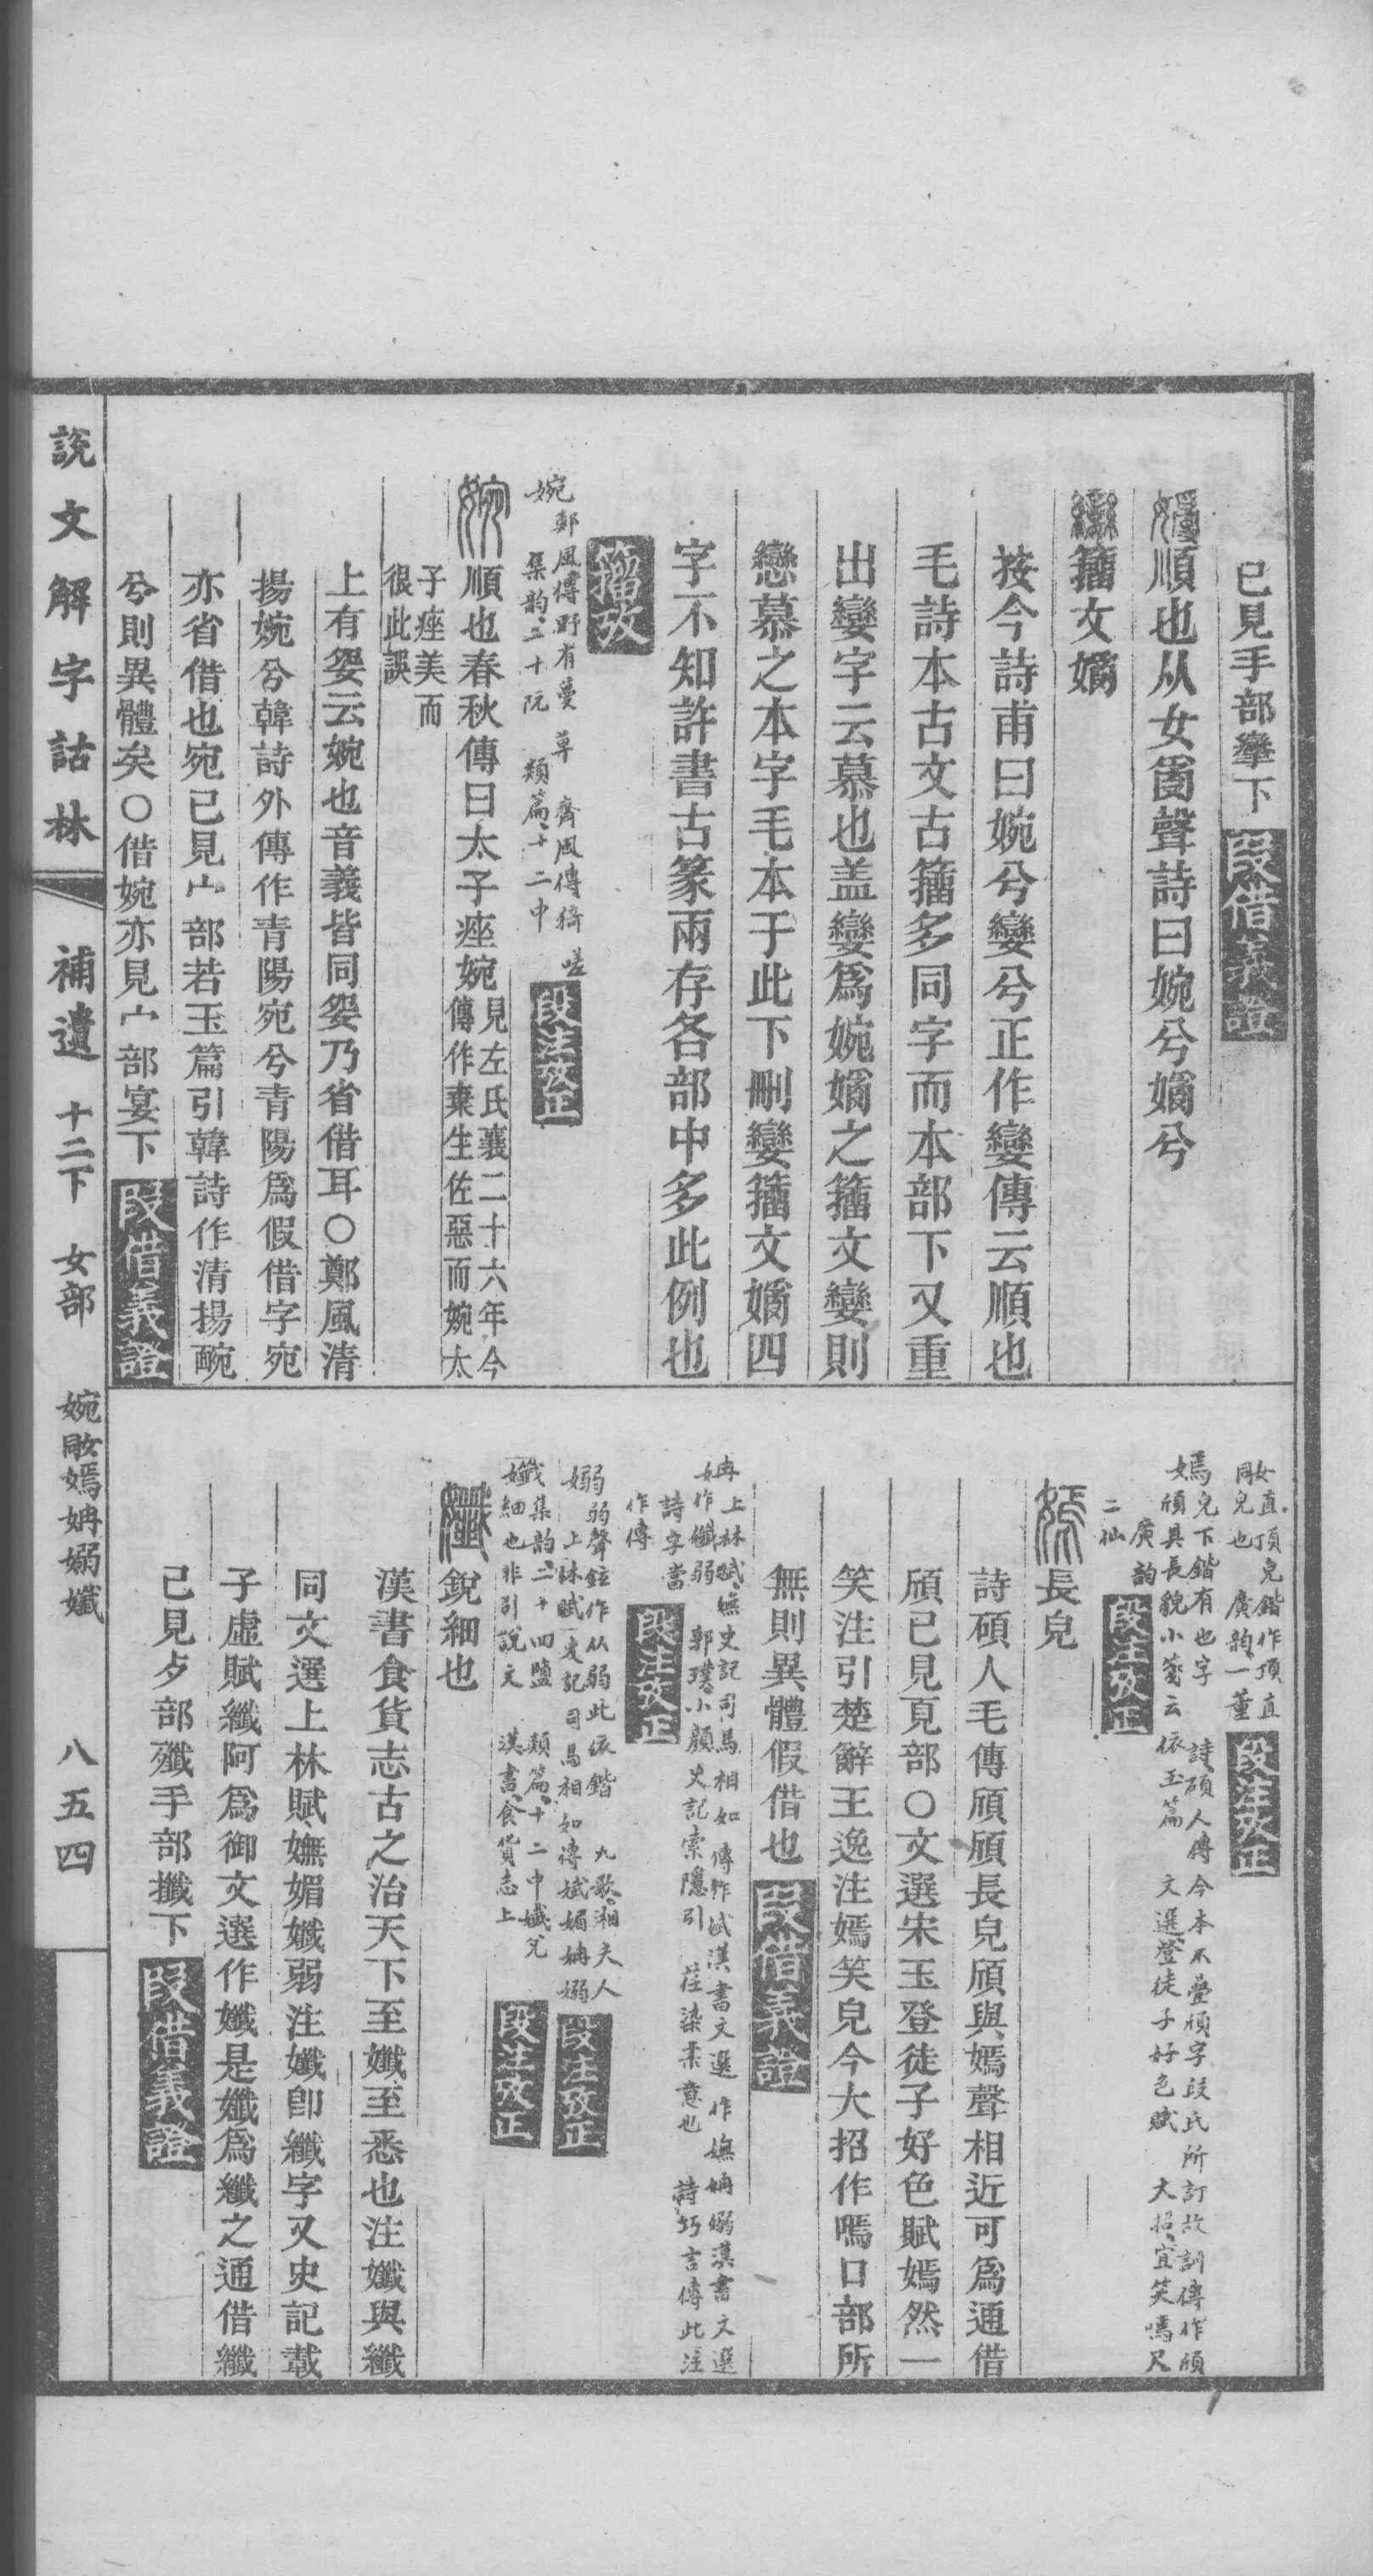 已見手部攣下 段借義證
順也从女𤔔聲詩曰婉兮嫡兮
籀文嫡
按今詩甫曰婉兮孌兮正作孌傳云順也
毛詩本古文古籀多同字而本部下又重
出孌字云慕也盖孌爲婉嫡之籀文孌則
戀慕之本字毛本于此下刪孌籀文嫡四
字不知許書古篆兩存各部中多此例也
籀攷
婉 鄭風傳野有蔓草 齊風傳猗嗟
集韵二十阮 類篇十二中 段注攷正
順也春秋傳曰太子痤婉 見左氏襄二十六年今
傳作棄生佐惡而婉太
子痤美而
很此誤
上有婜云婉也音義皆同婜乃省借耳〇鄭風清
揚婉兮韓詩外傳作青陽宛兮青陽爲假借字宛
亦省借也宛已見宀部若玉篇引韓詩作清揚畹
兮則異體矣〇借婉亦見宀部宴下 段借義證
直頂皃鍇作頂直
皃也 廣韵一董 段注攷正
嫣 皃下鍇有也字 詩碩人傳今本不疊頎字段氏所訂故訓傳作頎
頎具長貌小箋云依玉篇 文選登徒子好色賦 大招宜笑嗎尺
廣韵
二仙 段注攷正
長皃
詩碩人毛傳頎頎長皃頎與嫣聲相近可爲通借
頎已見頁部〇文選宋玉登徒子好色賦嫣然一
笑注引楚辭王逸注嫣笑皃今大招作嗎口部所
無則異體假借也 段借義證
姌 上林賦嫵史記司馬相如傳作娬漢書文選作嫵姌嫋漢書文選
作孅弱 郭璞小顏史記索隱引 荏染柔意也 詩巧言傳此注
詩字當
作傳 段注攷正
嫋 弱聲鉉作从弱此依鍇 九歌湘夫人
上林賦史記司馬相如傳娬媚姌嫋 段注攷正
孅 集韵二十四鹽 類篇十二中孅兌
細也非引說文 漢書食貨志上 段注攷正
銳細也
漢書食貨志古之治天下至孅至悉也注孅與纖
同文選上林賦嫵媚孅弱注孅卽纖字又史記載
子虛賦纖阿爲御文選作孅是孅爲纖之通借纖
已見歺部殲手部攕下 段借義證
說文解字詁林 補遺 十二下 女部 婉㛚嫣姌嫋孅 八五四